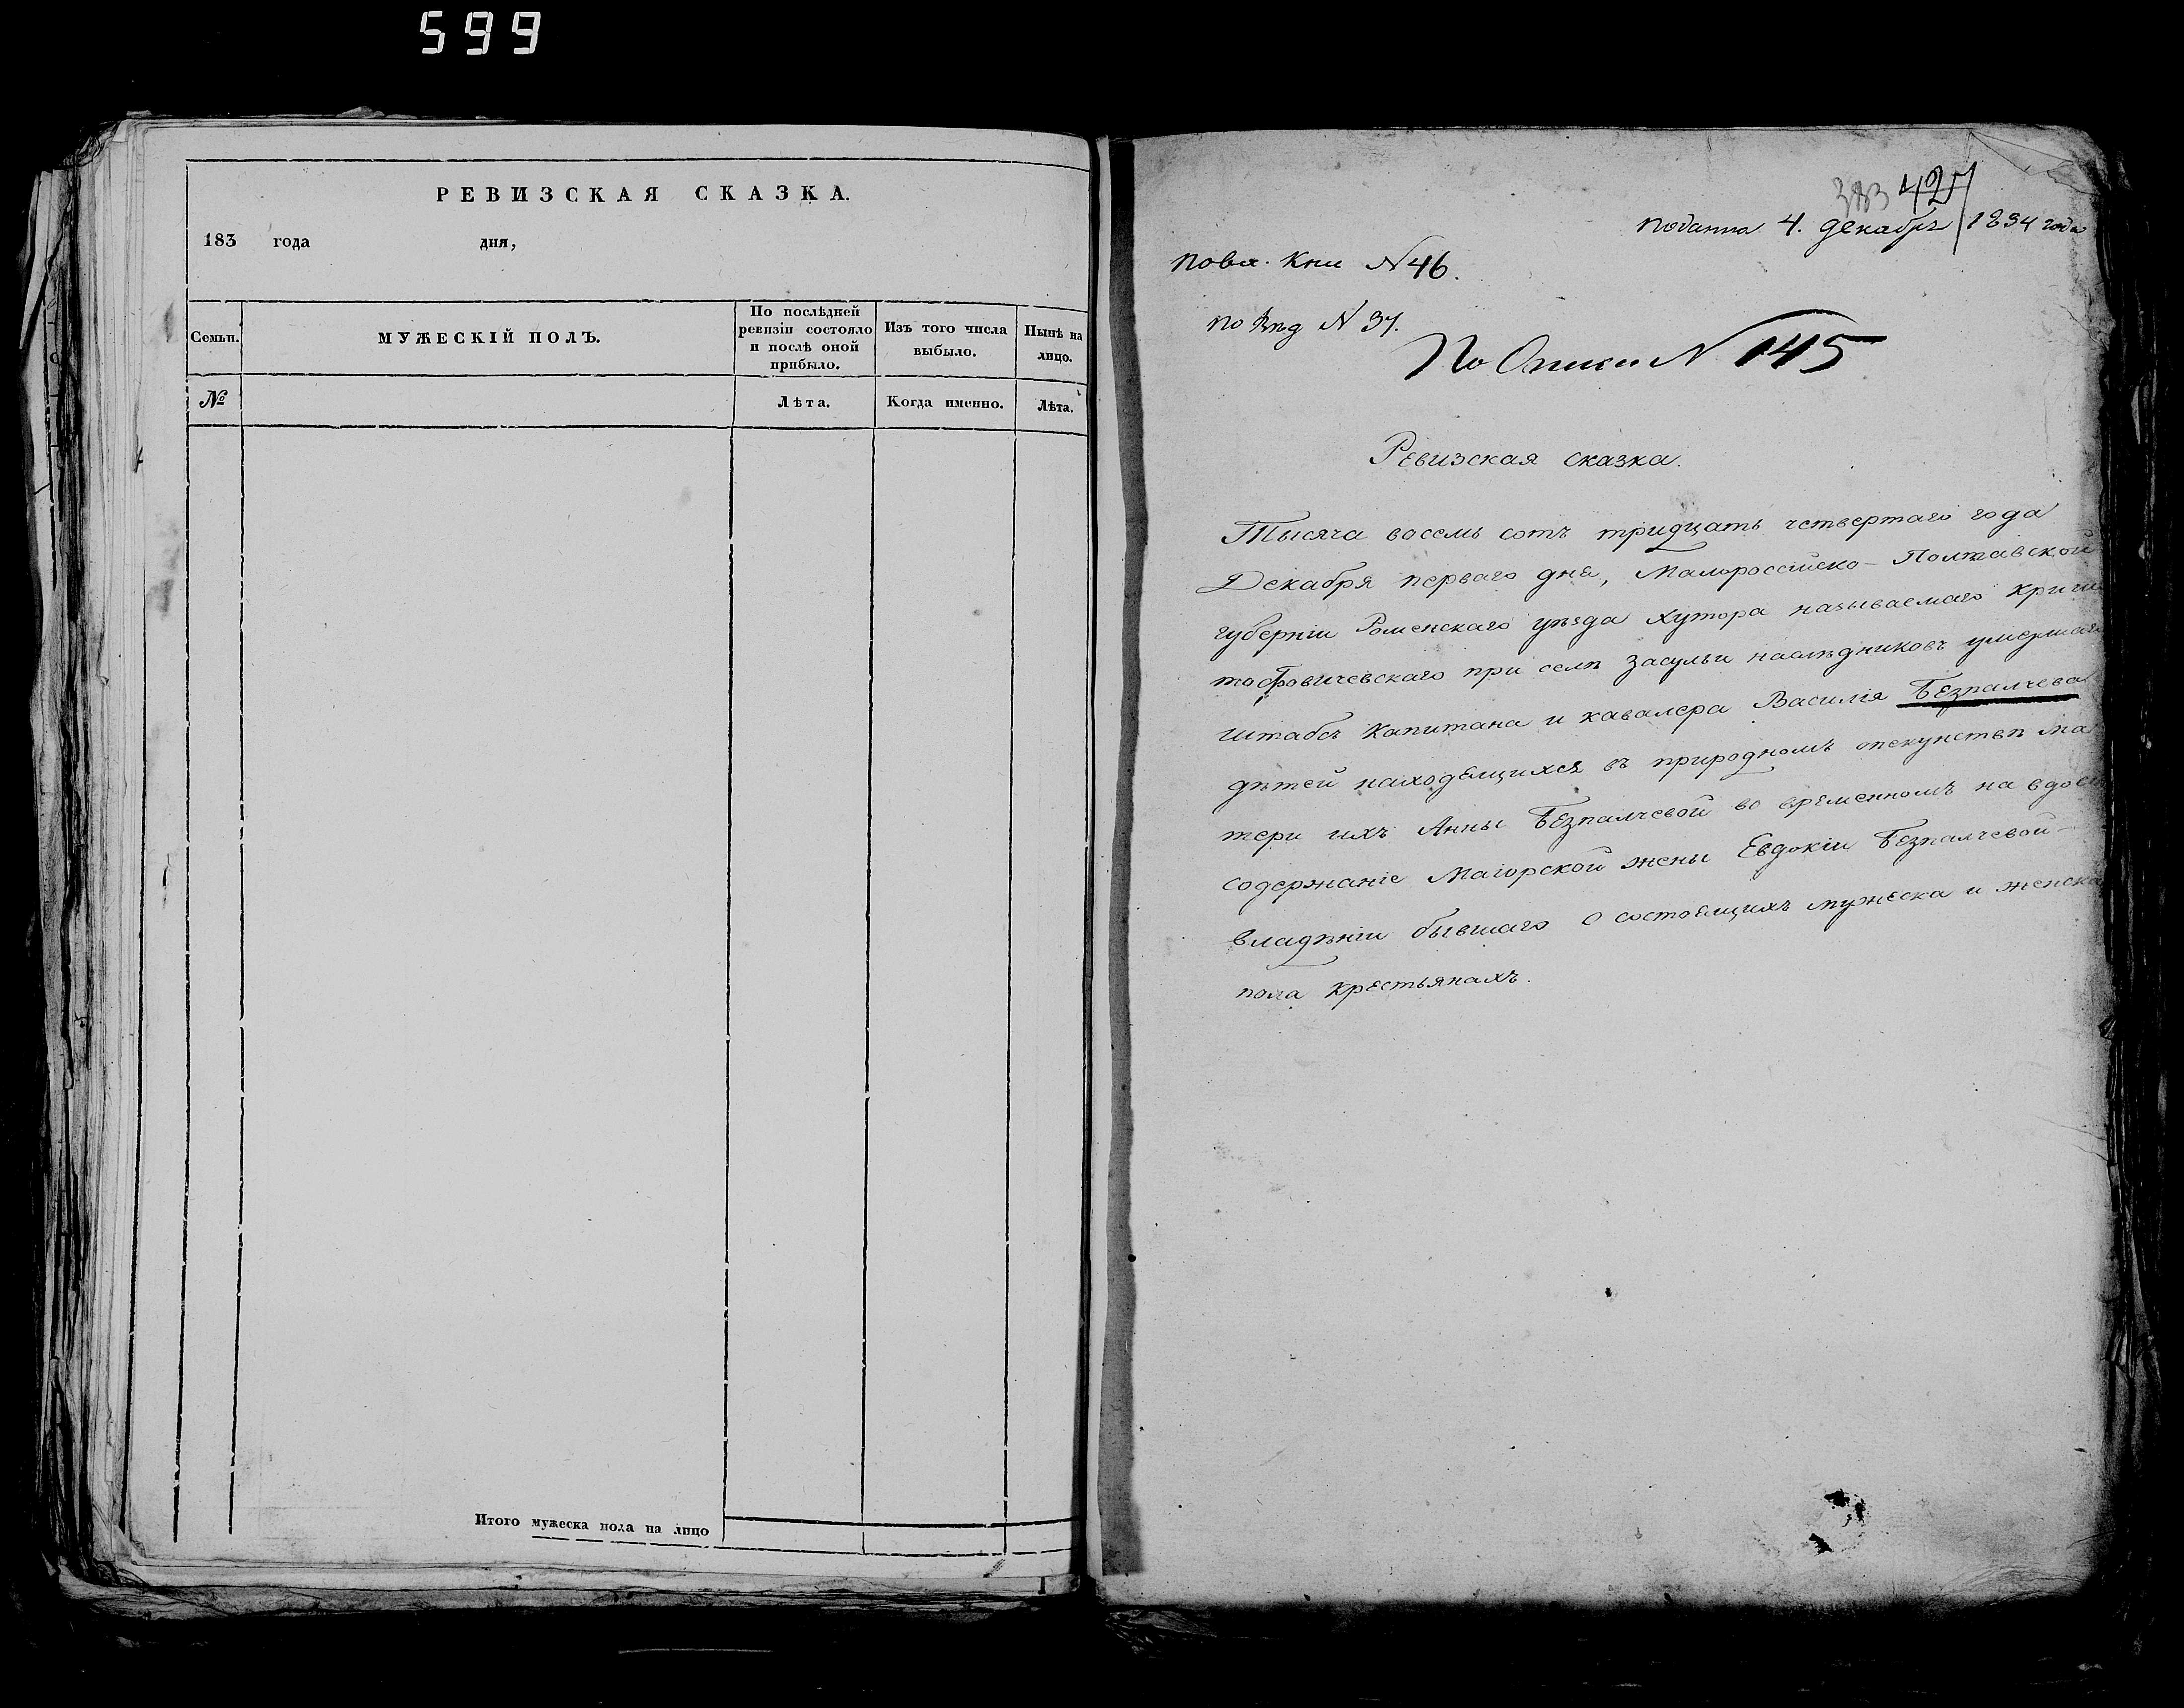 599
РЕВИЗСКАЯ СКАЗКА.
183 года дня,
Семьи.
МУЖЕСКІЙ ПОЛЪ.
По послѣдней
ревизіи состояло
и послѣ оной
прибыло.
Изъ того числа
выбыло.
Нынѣ на
лицо.
№
Лѣта.
Когда именно.
Лѣта.
Итого мужеска пола на лицо
1
383 427
Поданна 4. декабря 1834 года
Кни N 46.
по N 37.
По Описи N 145
Ревизская сказка.
Тысяча восемь сотъ тридцать четвертаго года
Декабря перваго дня, Малороссійско-Полтавской
губерніи Роменскаго уѣзда Хутора называемаго Крыш
тофовичевскаго при селѣ Засульи наслѣдниковъ умершаго
Штабсъ Капитана и кавалера Василія Безпалчева
дѣтей находящихся въ природномъ опекунствѣ ма
тери ихъ Анны Безпалчевой во временномъ на вдовье
содержаніе Маіорской жены Евдокіи Безпалчевой
владѣніи бывшаго о состоящихъ мужеска и женска
пола крестьянахъ.